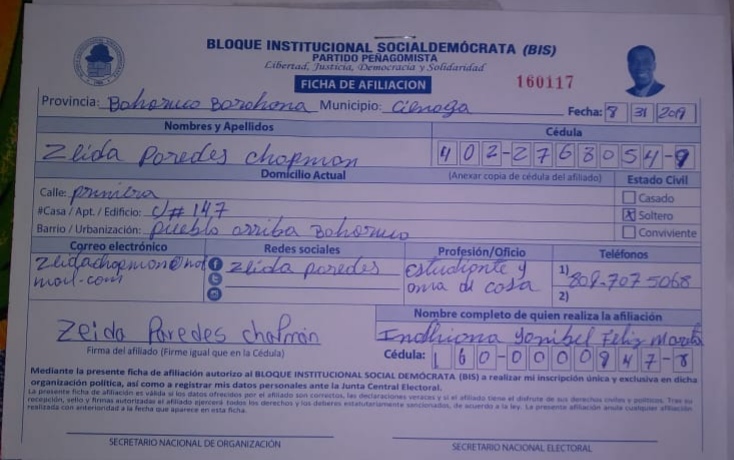 BLOQUE INSTITUCIONAL SOCIALDEMÓCRATA (BIS)
PARTIDO PEÑAGOMISTA
Libertad, Justicia, Democracia y Solidaridad
FICHA DE AFILIACION
160117
Provincia: Bahoruco Barahona Municipio: Cienaga Fecha: 8 31 2019
Nombres y Apellidos Cédula
Zleida Paredes chapman 402-2768054-9
Domicilio Actual (Anexar copia de cédula del afiliado) Estado Civil
Calle: primera
Casado
#Casa / Apt. / Edificio: c/# 147
X Soltero
Barrio / Urbanización: pueblo arriba Bahoruco
Conviviente
Correo electrónico Redes sociales Profesión/Oficio Teléfonos
zleidachapman@hot
mail.com
zleida paredes
estudiante y
ama de casa
1) 809-707 5068
2)
Nombre completo de quien realiza la afiliación
Zeida Paredes chapman
Indhiana Yanibel Feliz
Firma del afiliado (Firme igual que en la Cédula)
Cédula: 160-0000947-8
Mediante la presente ficha de afiliación autorizo al BLOQUE INSTITUCIONAL SOCIAL DEMÓCRATA (BIS) a realizar mi inscripción única y exclusiva en dicha
organización política, así como a registrar mis datos personales ante la Junta Central Electoral.
La presente ficha de afiliación es válida si los datos ofrecidos por el afiliado son correctos, las declaraciones veraces y si el afiliado tiene el disfrute de sus derechos civiles y políticos. Tras su
recepción, sello y firmas autorizadas el afiliado ejercerá todos los derechos y los deberes estatutariamente sancionados, de acuerdo a la ley. La presente afiliación anula cualquier afiliación
realizada con anterioridad a la fecha que aparece en esta ficha.
SECRETARIO NACIONAL DE ORGANIZACIÓN
SECRETARIO NACIONAL ELECTORAL